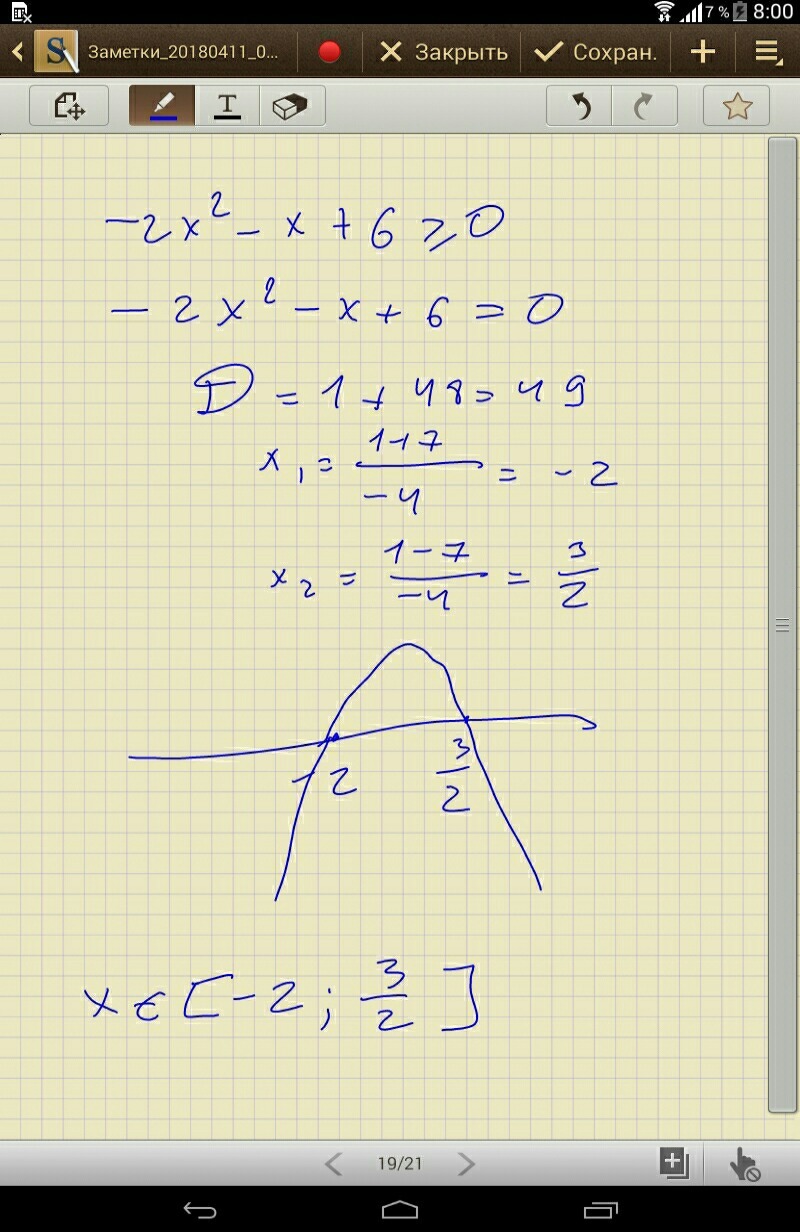 7 % 8:00
Заметки_20180411_0... Закрыть Сохран.
T
-2x² - x + 6 ≥ 0
- 2x² - x + 6 = 0
D = 1 + 48 = 49
x₁ = (1+7)/(-4) = -2
x₂ = (1-7)/(-4) = 3/2
-2 3/2
x ∈ [-2; 3/2]
19/21